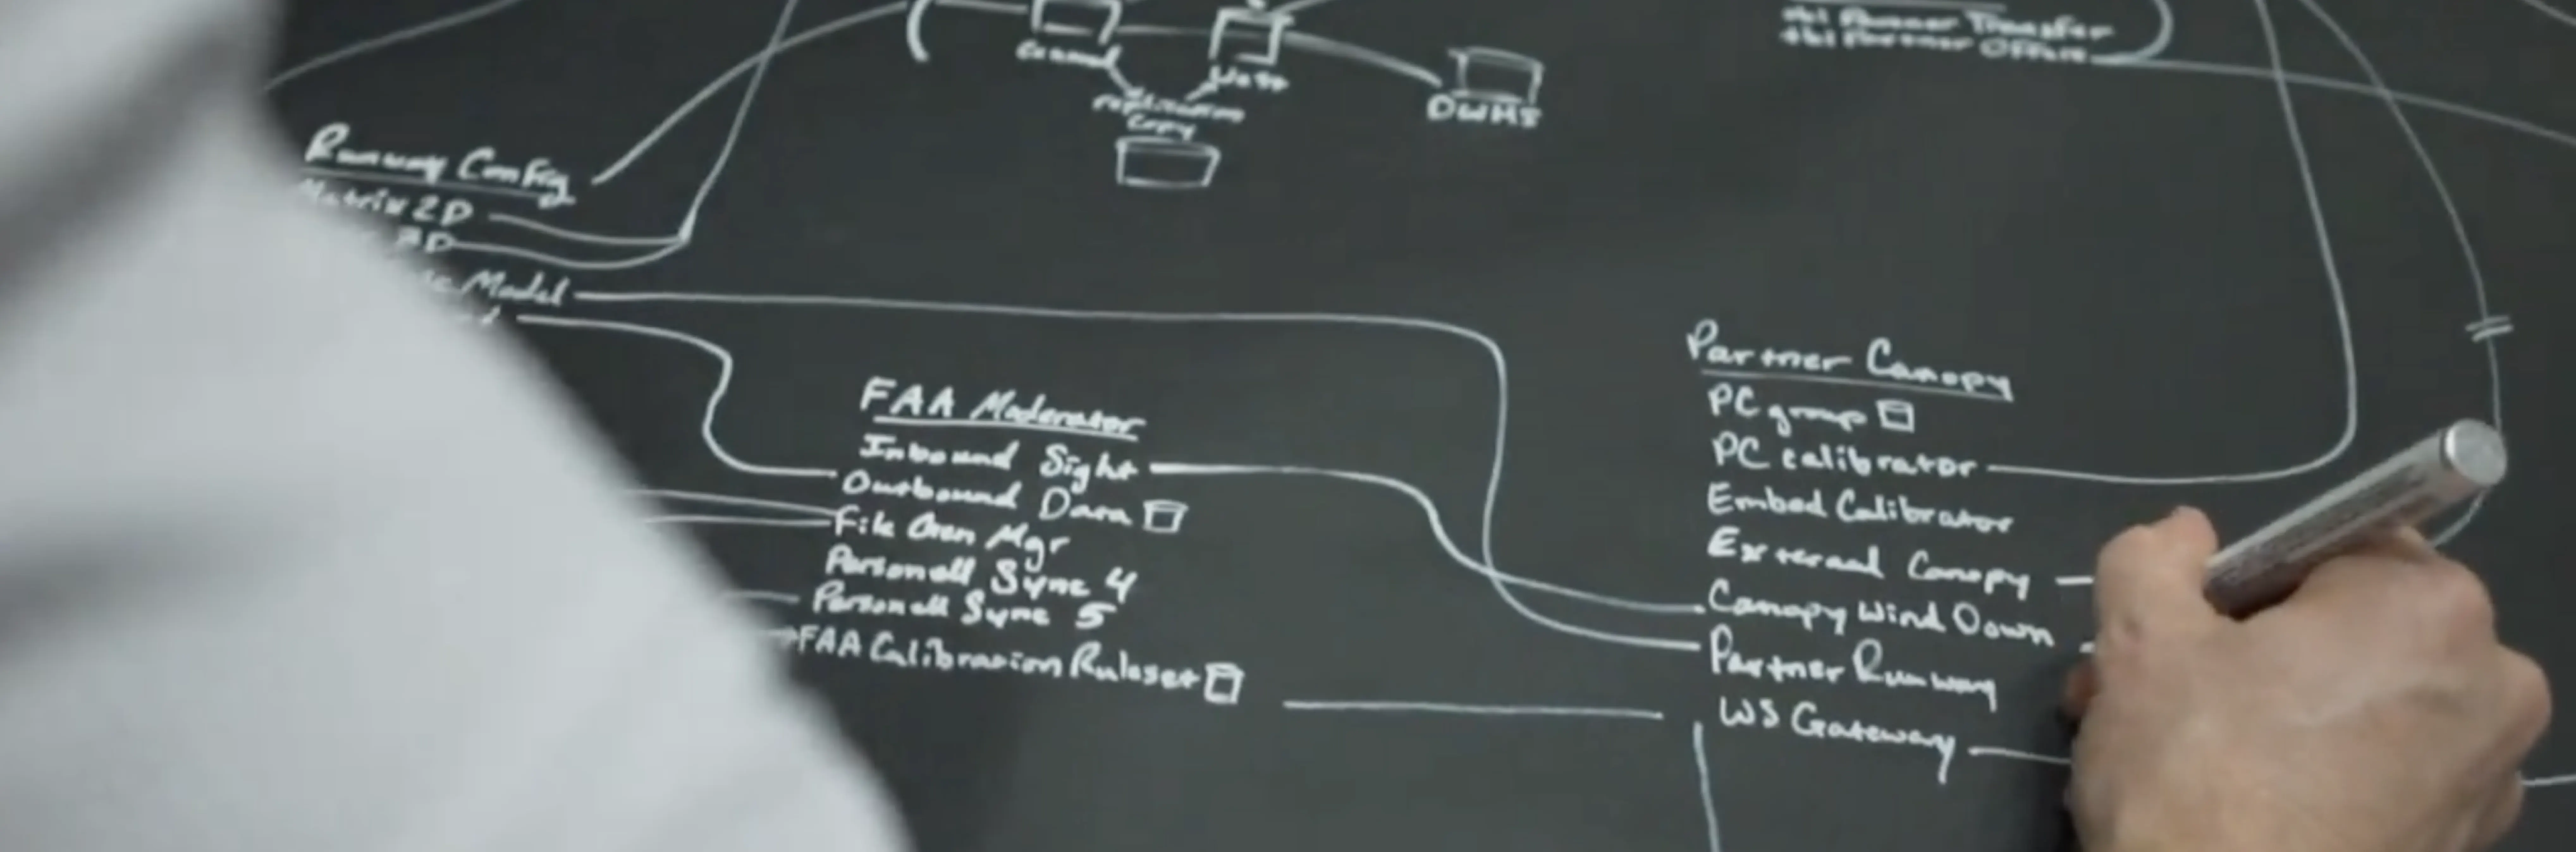 tbl Partner Transfer
tbl Partner
DWMS
replication
Copy
Runway Config
Matrix 2D
3D
Model
FAA Moderator
Inbound Sight
Outbound Data
File Gen Mgr
Personell Sync 4
Personell Sync 5
FAA Calibration Ruleset
Partner Canopy
PC group
PC calibrator
Embed Calibrator
External Canopy
Canopy Wind Down
Partner Runway
WS Gateway